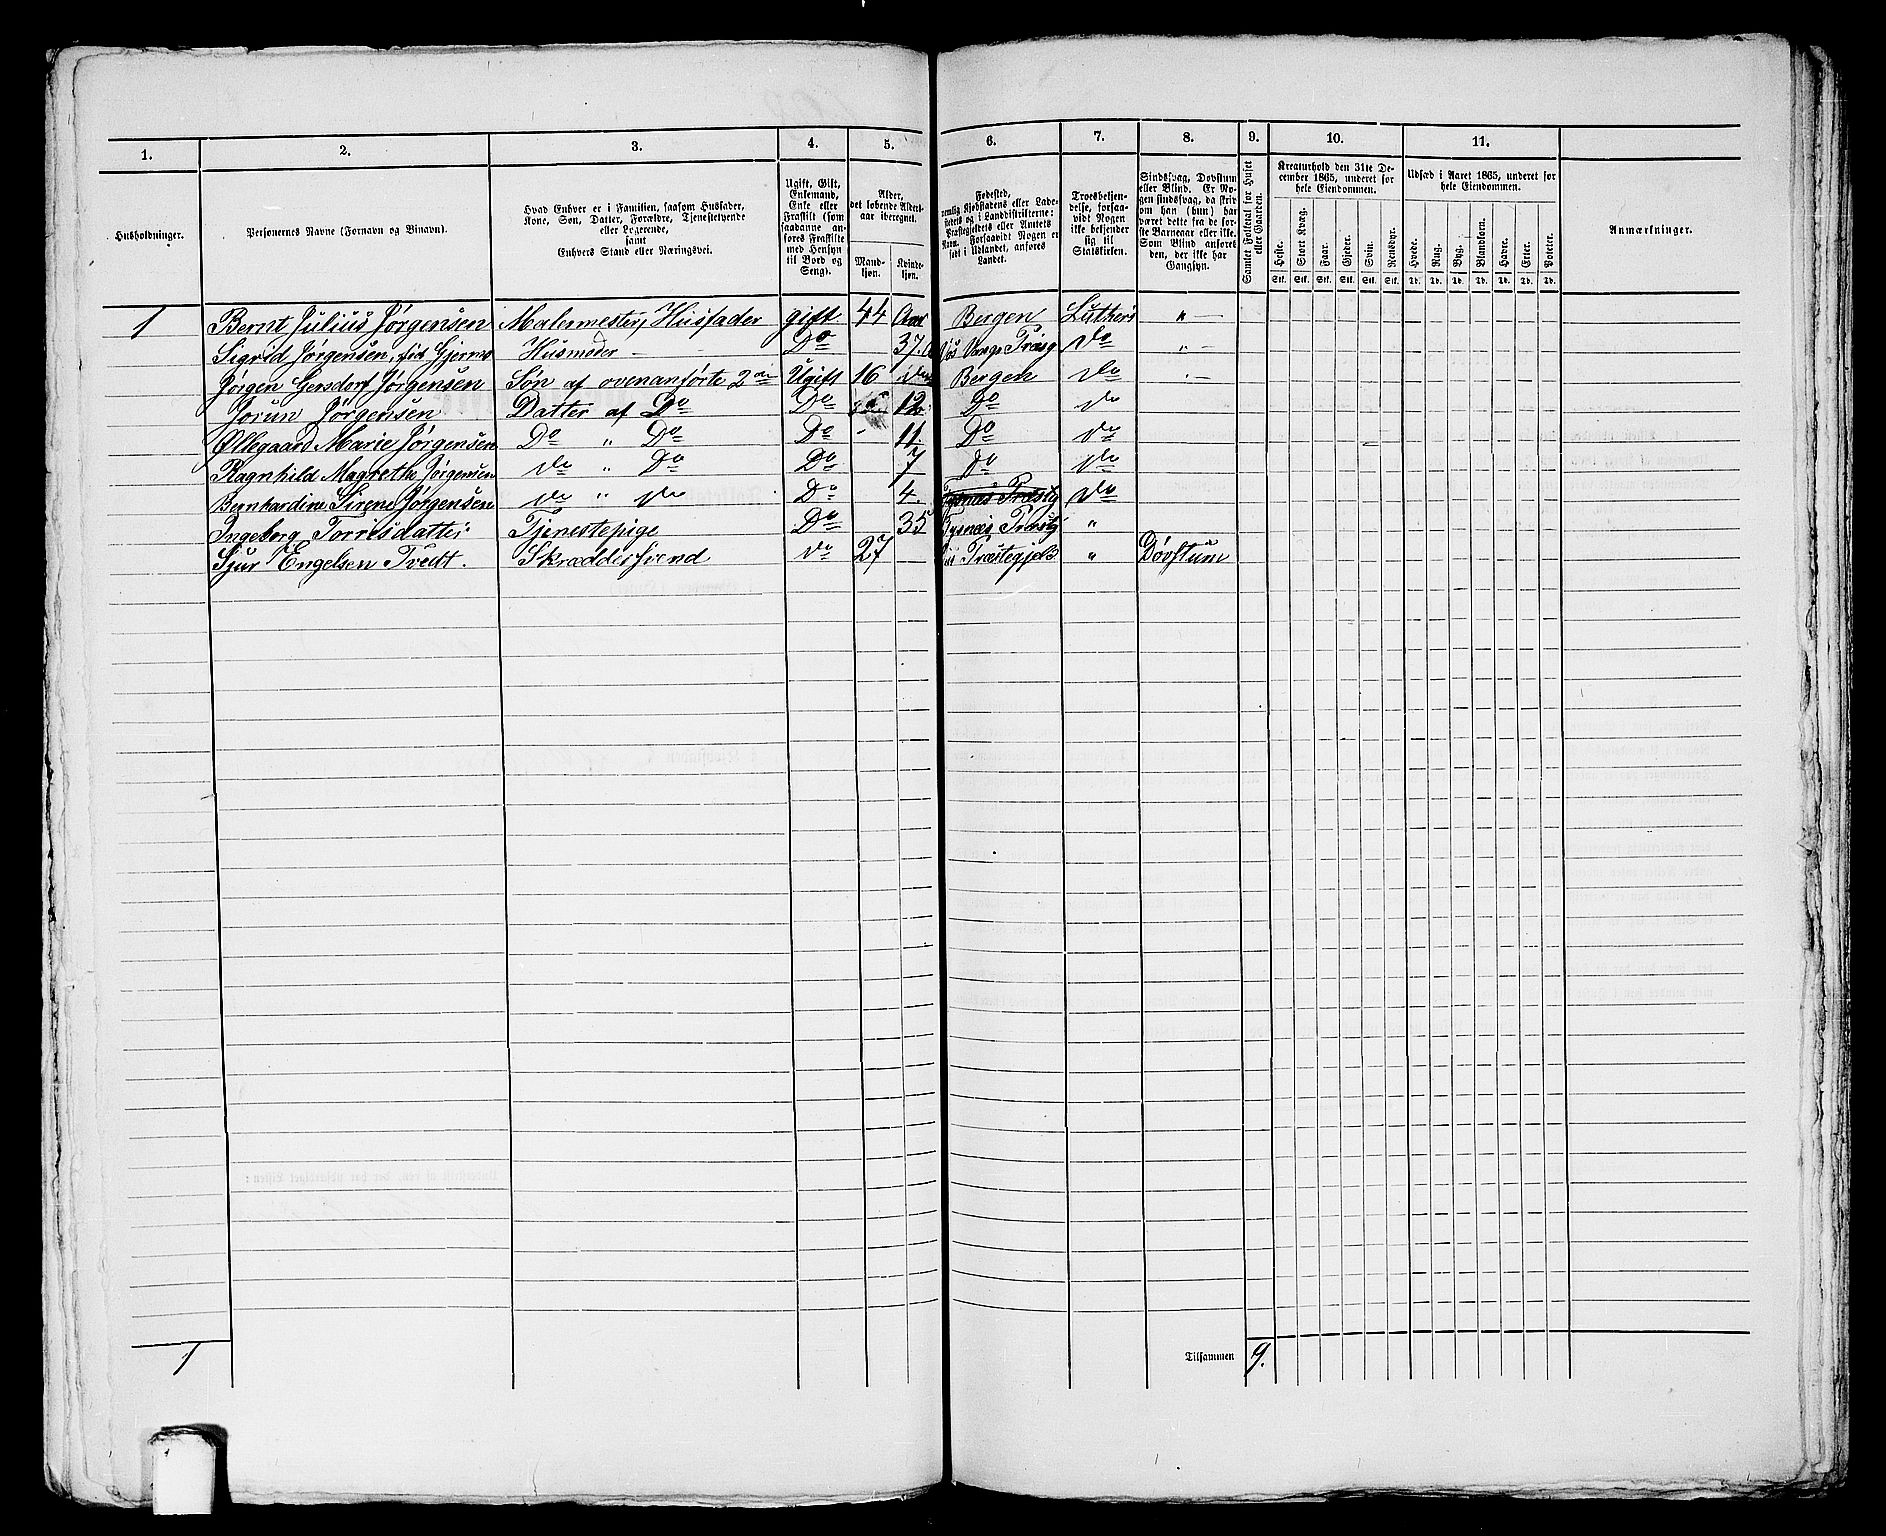 1. 2. 3. 4. 5. 6. 7. 8. 9. 10. 11.
Husholdninger.
Personernes Navne (Fornavn og Binavn).
Hvad Enhver er i Familien, saasom Husfader, Kone, Søn, Datter, Forældre, Tjenestetyende eller Logerende, samt Enhvers Stand eller Næringsvei.
Ugift, Gift, Enkemand, Enke eller Fraskilt (som saadanne anføres Fraskilte med Hensyn til Bord og Seng).
Alder, det løbende Alders-aar iberegnet.
Mandkjøn. Kvindekjøn.
Fødested, nemlig Kjøbstadens eller Ladestedets og i Landdistrikterne: Præstegjeldets eller Annexets Navn. Forsaavidt Nogen er født i Udlandet, anføres Landet.
Troesbekjendelse, forsaavidt Nogen ikke bekjender sig til Statskirken.
Sindssvag, Døvstum eller Blind. Er Nogen sindssvag, da skriv om han (hun) har været dette fra de første Barneaar eller ikke. Som Blind anføres den, der ikke har Gangsyn.
Samlet Folketal for Huset eller Gaarden.
Kreaturhold den 31te December 1865, underet for hele Eiendommen.
Heste. Stort Kvæg. Faar. Gjeder. Svin. Rensdyr.
Stk. Stk. Stk. Stk. Stk. Stk.
Udsæd i Aaret 1865, underet for hele Eiendommen.
Hvede. Rug. Byg. Blandkorn. Havre. Erter. Poteter.
Td. Td. Td. Td. Td. Td. Td.
Anmærkninger.
1 Bernt Julius Jørgensen Malermester, Husfader gift 44 Aar Bergen Luthers "
Sigrid Jørgensen, fød Gjernes Husmoder Do 37. Vos Vangs Præsg do "
Jørgen Gersdorf Jørgensen Søn af ovenanførte 2de Ugift 16 Bergen do
Jorun Jørgensen Datter af Do Do 12 Do do
Ollegaard Marie Jørgensen Do " Do Do 11. Do do
Ragnhild Magrethe Jørgensen do " Do Do 7 Do do
Bernhardine Sirene Jørgensen do " do Do 4. do
Ingeborg Torrisdatter Tjenestepige Do 35 Tysnæs Præstg "
Sjur Engelsen Tvedt. Skræddersvend do 27 Præstegjeld " Døvstum
1 Tilsammen 9.